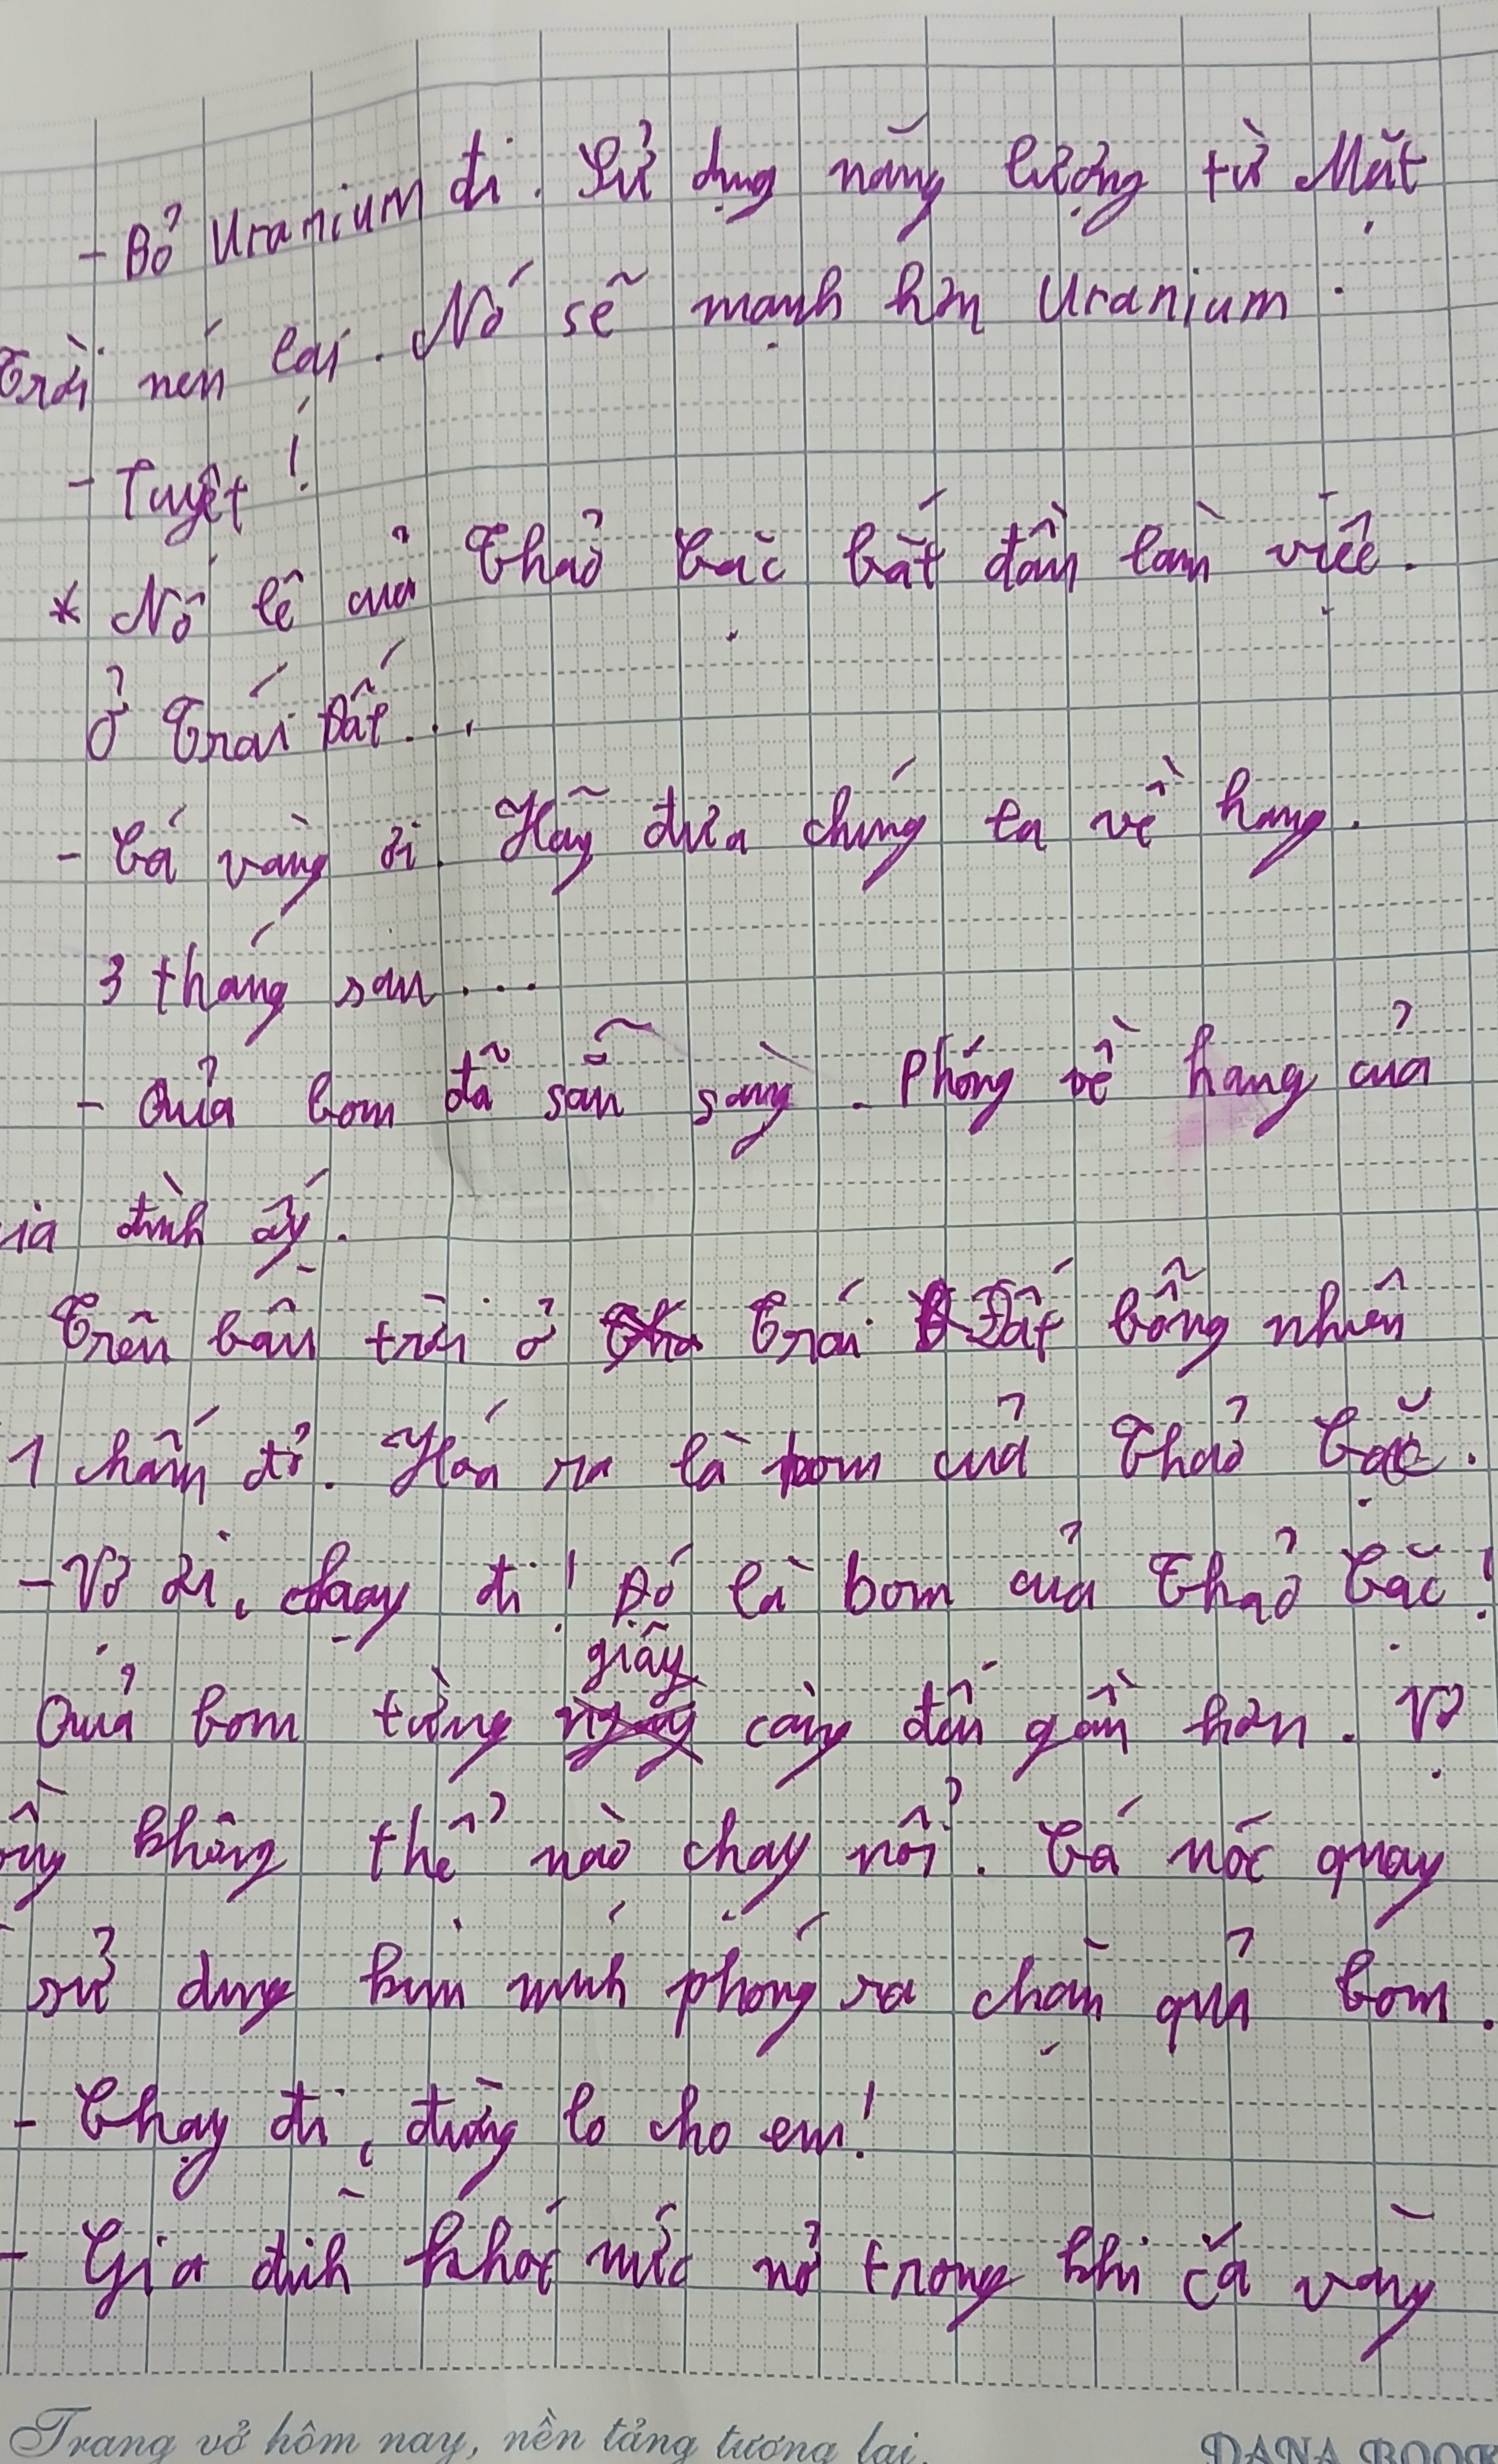 - Bỏ Uranium đi. Sử dụng năng lượng từ Mặt
Trời nén lại. Nó sẽ mạnh hơn Uranium.
- Tuyệt!
* Nô lệ của Thảo Cặc bắt đầu làm việc.
Ở Trái Đất...
- Cá vàng ơi. Hãy đưa chúng ta về hang.
3 tháng sau...
- Quả bom đã sẵn sàng. Phóng về hang của
ia đình ấy.
Trên bầu trời ở Trái Đất bỗng nhiên
1 chấm đỏ. Hóa ra là bom của Thảo Cặc.
- Vợ ơi, chạy đi! Đó là bom của Thảo Cặc!
Quả bom từng giây càng đến gần hơn. Vợ
không thể nào chạy nổi. Cá nóc quay
sử dụng kim mình phóng ra chặn quả bom.
- Chạy đi, đừng lo cho em!
- Gia đình khóc nức nở trong khi cá vàng
Trang vở hôm nay, nền tảng tương lai.
DANA BOOK